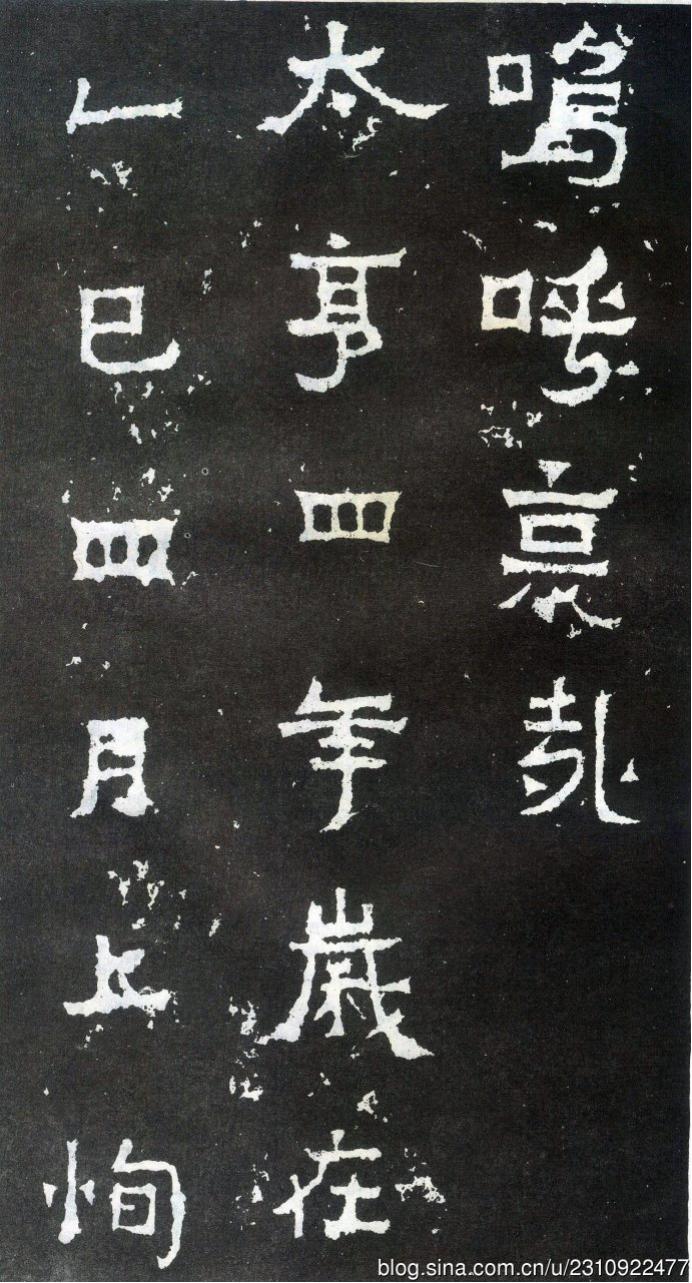 嗚呼哀哉
太亨四年歲在
乙巳四月上恂
blog.sina.com.cn/u/2310922477